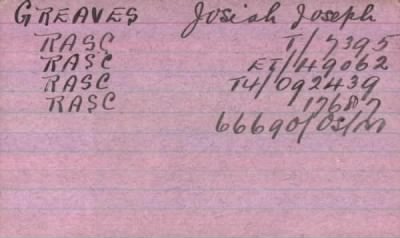 GREAVES Josiah Joseph
RASC T/7395
RASC ET/49062
RASC T4/092439
RASC 17687
66690/OS/M